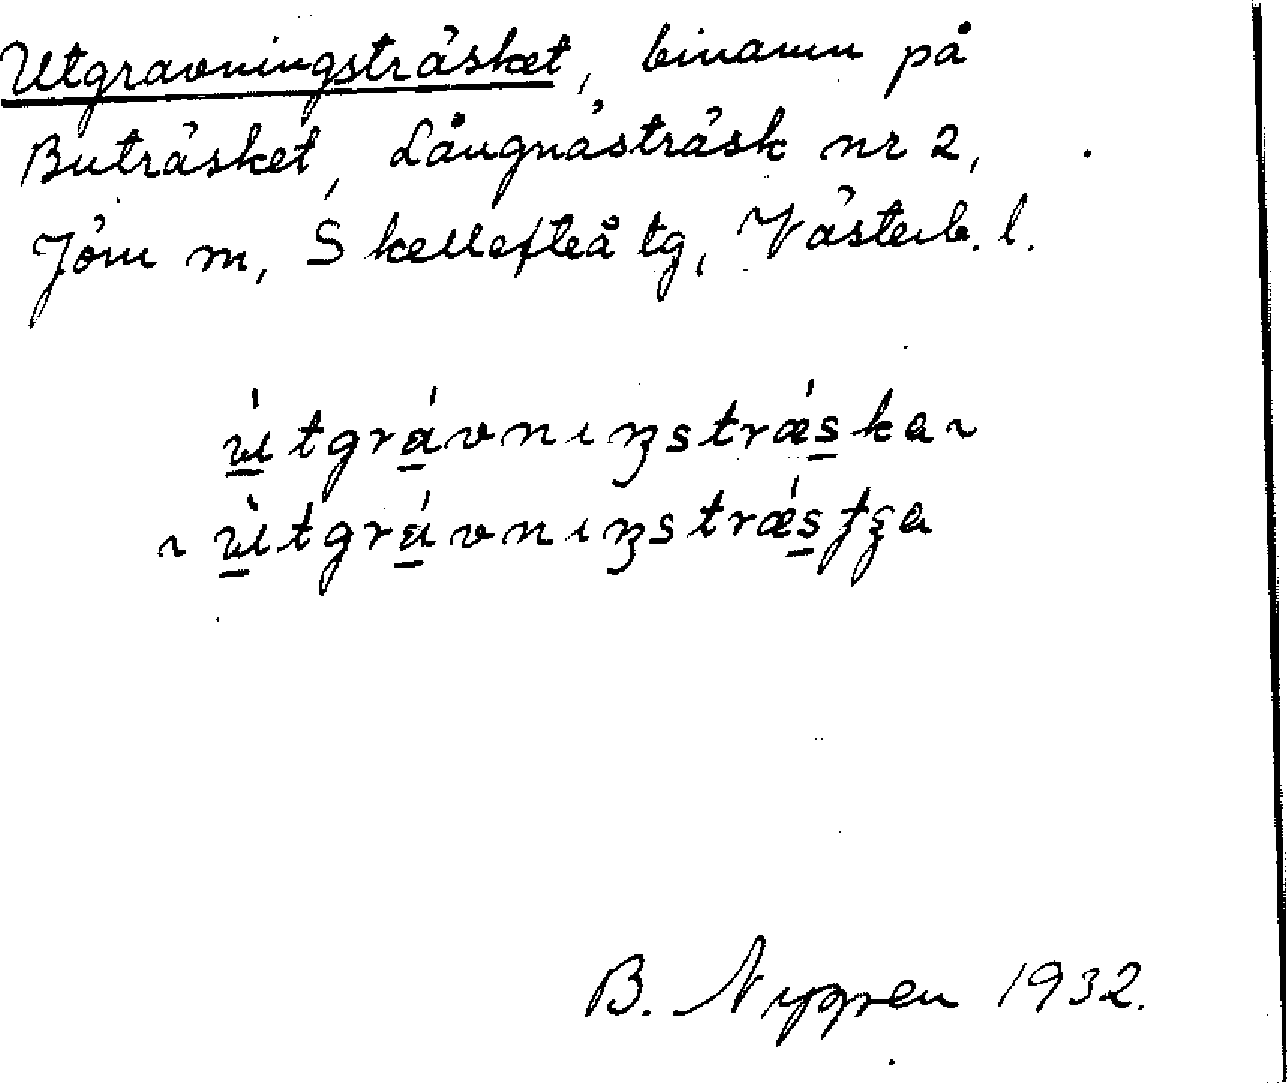 Utgravningsträsket, binamn på
Buträsket, Långnästräsk nr 2,
Jörn sn, Skellefteå tg, Västerb. l.
ùtgrávnıŋsträ́ska ~
~ ùtgrávnıŋsträ́sʈʂa
B. Nygren 1932.